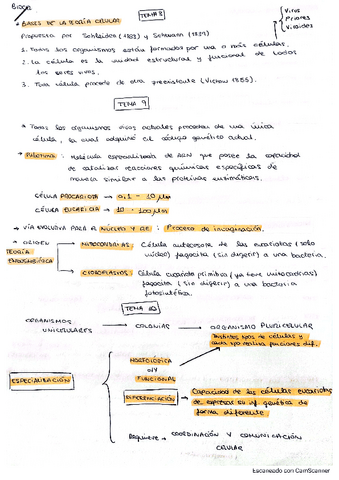 TEMA 8
Virus
Priones
Viroides
BASES DE LA TEORÍA CELULAR
Propuesta por Schleiden (1838) y Schwann (1839)
1. Todos los organismos están formados por una o más células.
2. La célula es la unidad estructural y funcional de todos
los seres vivos.
3. Toda célula procede de otra preexistente (Virchow 1855).
TEMA 9
Todos los organismos vivos actuales proceden de una única
célula, la cual adquirió el código genético actual.
: Molécula especializada de ARN que posee la capacidad
de catalizar reacciones químicas específicas de
manera similar a las proteínas enzimáticas.
CÉLULA PROCARIOTA → 0,1 - 10 μm
CÉLULA EUCARIOTA → 10 - 100 μm
VÍA EVOLUTIVA PARA EL NÚCLEO Y RE: Proceso de invaginación.
ORIGEN
TEORÍA
ENDOSIMBIÓTICA
MITOCONDRIAS: Célula antecesora de las eucariotas (solo
núcleo) fagocita (sin digerir) a una bacteria.
CLOROPLASTOS: Célula eucariota primitiva (ya tiene mitocondrias)
fagocita (sin digerir) a una bacteria
fotosintética.
TEMA 10
ORGANISMOS
UNICELULARES → COLONIAS → ORGANISMO PLURICELULAR
Distintos tipos de células y
cada tipo realiza funciones dif.
ESPECIALIZACIÓN
MORFOLÓGICA
O/Y
FUNCIONAL
DIFERENCIACIÓN → Capacidad de las células eucariotas
de expresar su inf. genética de
forma diferente.
Requiere → COORDINACIÓN Y COMUNICACIÓN
CELULAR
Escaneado con CamScanner